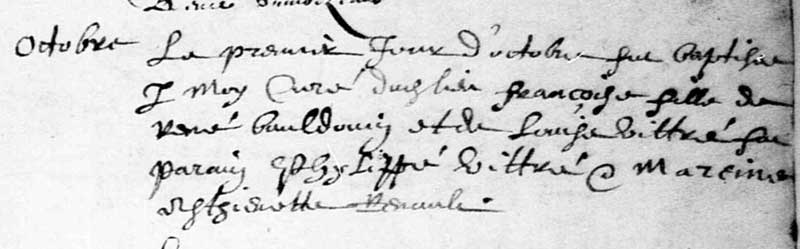 Octobre
Le premier Jour d'octobre fut baptisee
P Moy Curé dudit lieu françoise fille de
René bauldouin et de Louise vittré fut
parain Phylippé vittré &
Renault.